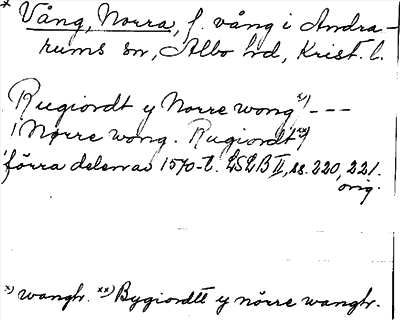 * Vång, Norra, f. vång i Andra-
rums sn, Albo hd, Krist. l.
Rugiordt y Norre wong x) ---
/ Norre wong. Rugiordt xx)
förra delen av 1570-t. LSLB II, ss. 220, 221.
orig.
x) wangh. xx) Bygiordtt y nörre wangh.